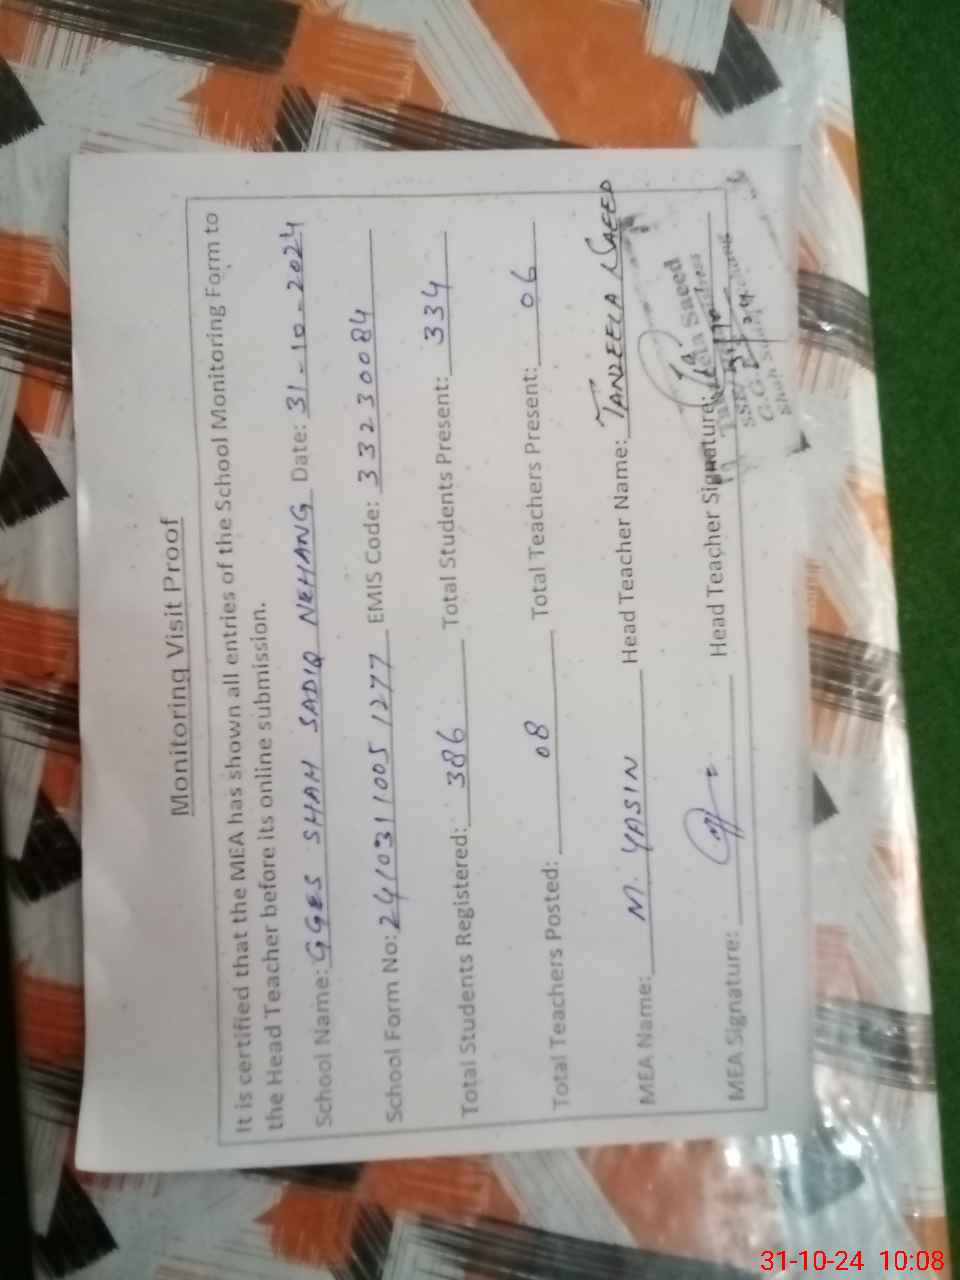 Monitoring Visit Proof
It is certified that the MEA has shown all entries of the School Monitoring Form to
the Head Teacher before its online submission.
School Name: GGES SHAH SADIQ NEHANG Date: 31-10-2024
School Form No: 24103110051277 EMIS Code: 33230084
Total Students Registered: 386 Total Students Present: 334
Total Teachers Posted: 08 Total Teachers Present: 06
MEA Name: M. YASIN Head Teacher Name: TANZEELA SAEED
MEA Signature: Head Teacher Signature:
Saeed
31-10-24 10:08